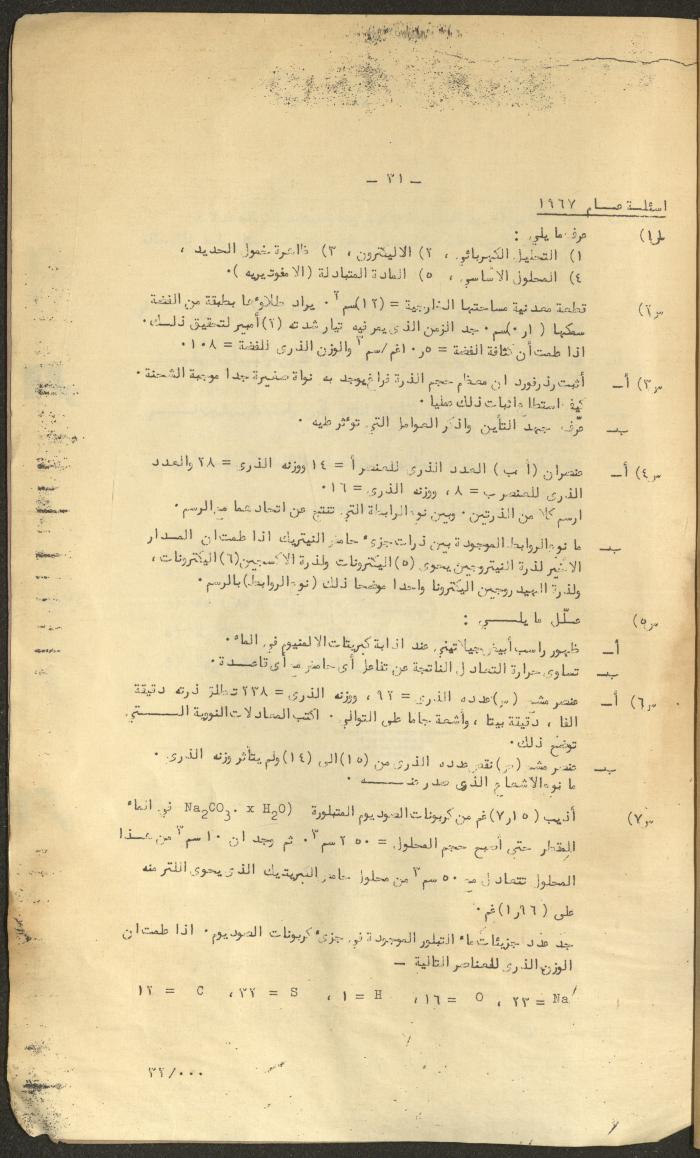 - ٣١ -
اسئلة عام ١٩٦٧
س١) عرف ما يلي :
١) التحليل الكهربائي ، ٢) الاليكترون ، ٣) ظاهرة خمول الحديد ،
٤) المحلول الاساسي ، ٥) المادة المتبادلة (الامفوتيريه) ٠
س٢) قطعة معدنية مساحتها الخارجية = (١٢)سم٢ ٠ يراد طلاؤها بطبقة من الفضة
سمكها ( ٠ر١)سم ٠ جد الزمن الذى يمر فيه تيار شدته (٢) أمبير لتحقيق ذلك ٠
اذا علمت أن كثافة الفضة = ٥ر١٠غم/سم٣ والوزن الذرى للفضة = ١٠٨ ٠
س٣) أ ـ أثبت رذرفورد ان معظم حجم الذرة فراغ يوجد به نواة صغيرة جدا موجبة الشحنة ٠
كيف استطاع اثبات ذلك عمليا ٠
ب ـ عرّف جهد التأين واذكر العوامل التي توثر عليه ٠
س٤) أ ـ عنصران (أ ، ب) العدد الذرى للعنصر أ = ١٤ ووزنه الذرى = ٢٨ والعدد
الذرى للعنصر ب = ٨ ، ووزنه الذرى = ١٦ ٠
ارسم كلا من الذرتين ٠ وبين نوع الرابطة التي تنتج عن اتحادهما مع الرسم ٠
ب ـ ما نوع الروابط الموجودة بين ذرات جزىء حامض النيتريك اذا علمت ان المدار
الاخير لذرة النيتروجين يحوى (٥) اليكترونات ولذرة الاكسجين(٦) اليكترونات ،
ولذرة الهيدروجين اليكترونا واحدا موضحا ذلك (نوع الروابط) بالرسم ٠
س٥) علّل ما يلي :
أ ـ ظهور راسب أبيض جيلاتيني عند اذابة كبريتات الالمنيوم في الماء ٠
ب ـ تساوى حرارة التعادل الناتجة عن تفاعل أى حامض مع أى قاعدة ٠
س٦) أ ـ عنصر مشع (س) عدده الذرى = ٩٢ ، ووزنه الذرى = ٢٣٨ تطلق ذرته دقيقة
الفا ، دقيقة بيتا ، وأشعة جاما على التوالي ٠ اكتب المعادلات النووية التي
توضح ذلك ٠
ب ـ عنصر مشع (ص) نقص عدده الذرى من (١٥) الى (١٤) ولم يتأثر وزنه الذرى ٠
ما نوع الاشعاع الذى صدر عنه ٠
س٧) أذيب (١٥ر٧) غم من كربونات الصوديوم المتبلورة (Na₂CO₃. x H₂O في الماء
المقطر حتى أصبح حجم المحلول = ٢٥٠ سم٣ ٠ ثم وجد ان ١٠ سم٣ من هذا
المحلول تتعادل مع ٥٠ سم٣ من محلول حامض الكبريتيك الذى يحوى اللتر منه
على (٩٦ر١) غم ٠
جد عدد جزيئات ماء التبلور الموجودة في جزىء كربونات الصوديوم ٠ اذا علمت ان
الوزن الذرى للعناصر التالية ـ
Na = ٢٣ ، O = ١٦ ، H = ١ ، S = ٣٢ ، C = ١٢
٣٢/٠٠٠